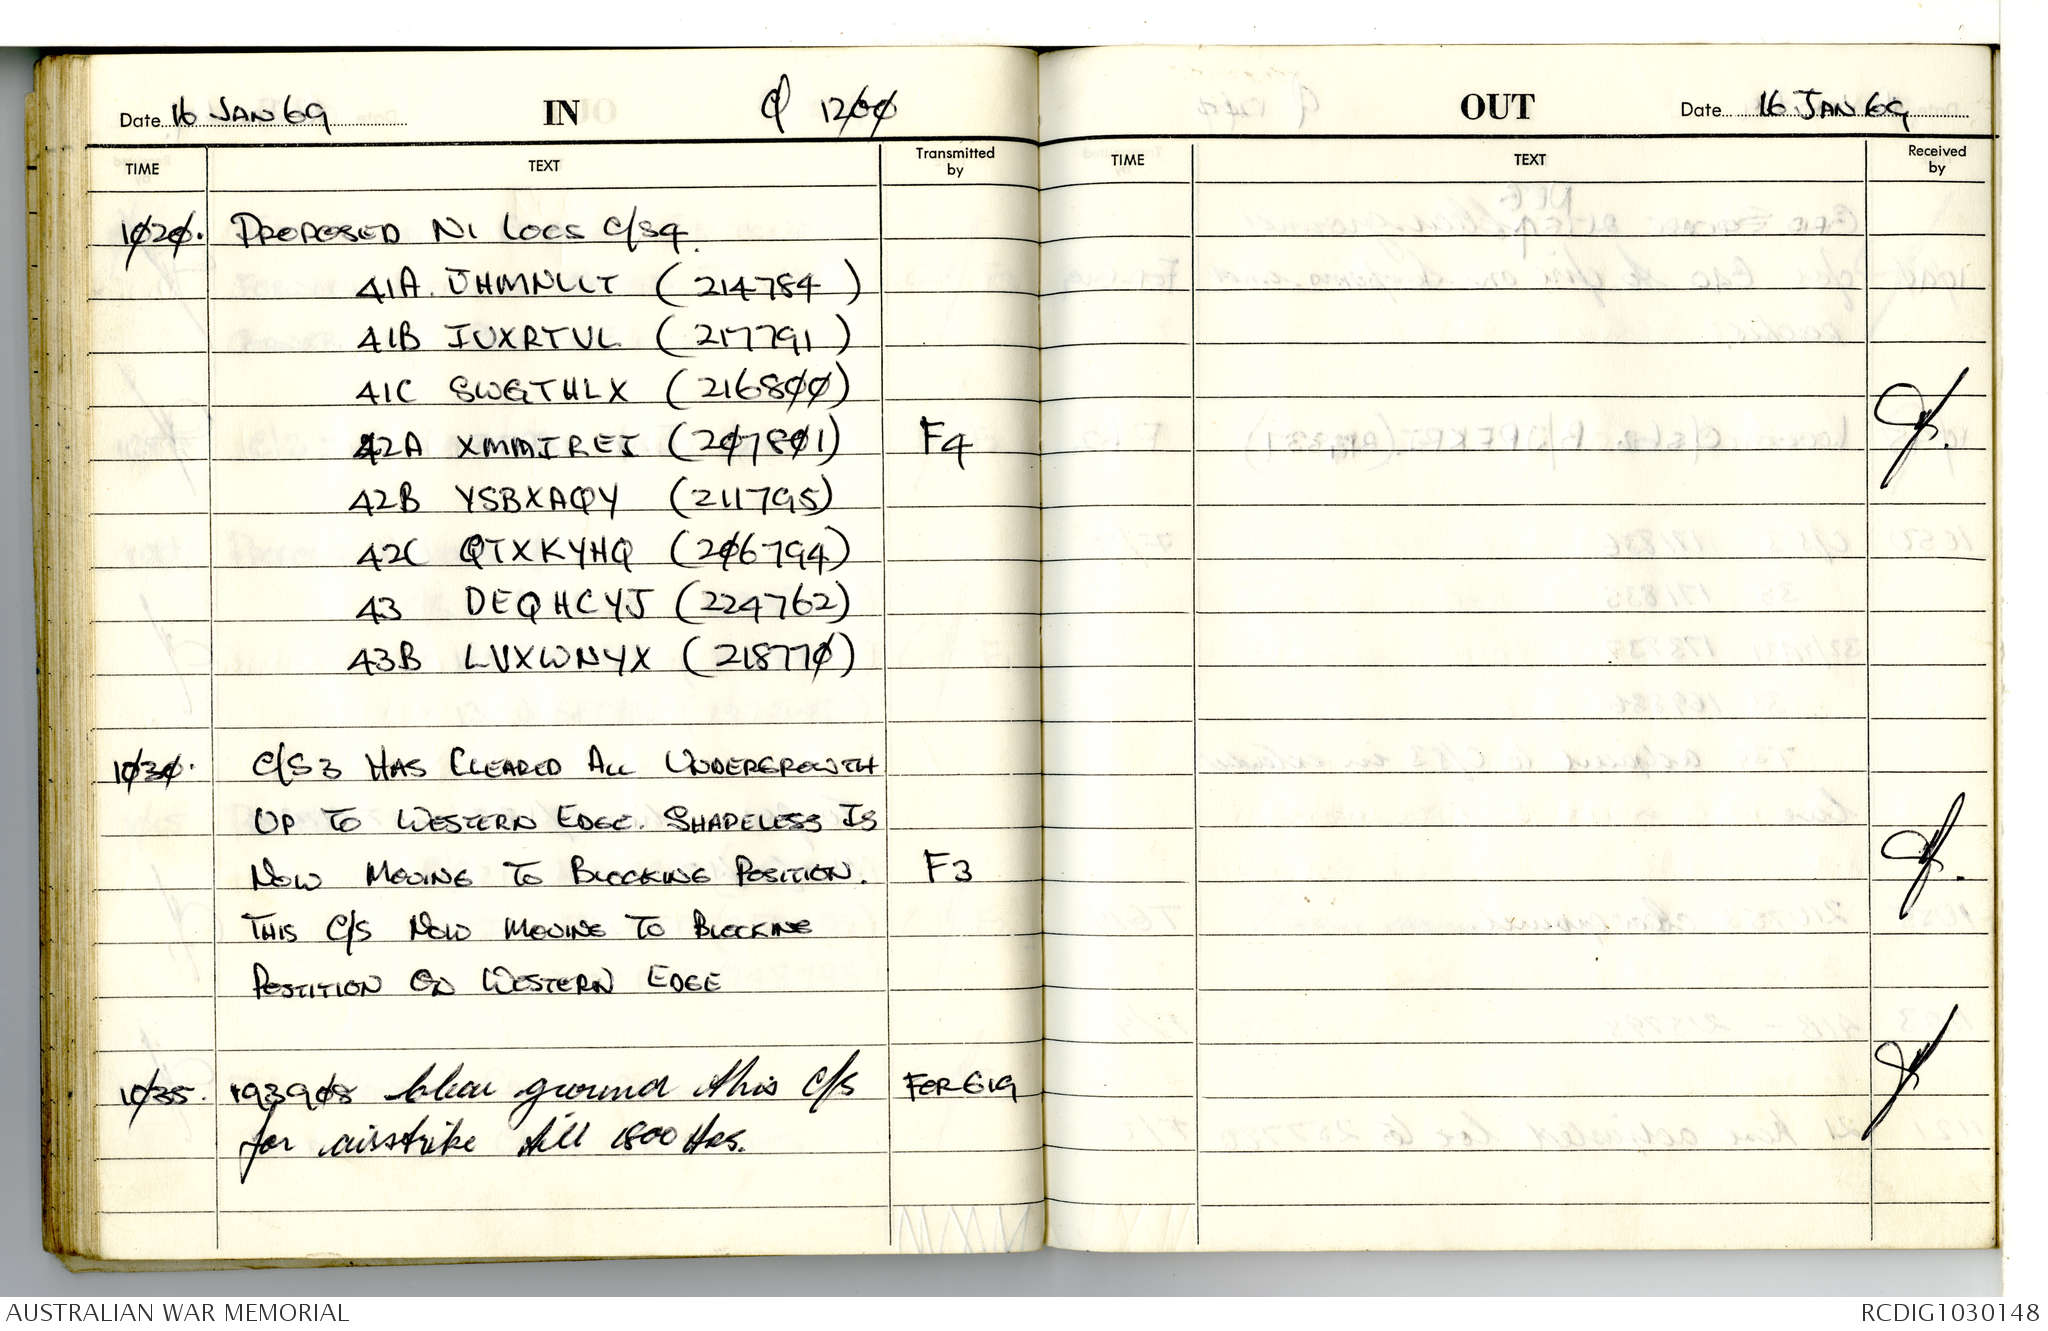 Date 16 JAN 69 IN 1200
TIME TEXT Transmitted by
1020. PROPOSED NI LOCS C/S4.
41A. JHMNLLT (214784)
41B IUXRTUL (217791)
41C SWGTHLX (216800)
42A XMMIREI (207801) F4
42B YSBXAQY (211795)
42C QTXKYHQ (206794)
43 DEQHCYJ (224762)
43B LVXWNYX (218770)
1030. C/S3 HAS CLEARED ALL UNDERGROWTH
UP TO WESTERN EDGE. SHAPELESS IS
NOW MOVING TO BLOCKING POSITION. F3
THIS C/S NOW MOVING TO BLOCKING
POSITION ON WESTERN EDGE
1035. 193908 clear ground this C/S FOR G19
for airstrike till 1800 HRS.
OUT Date 16 JAN 69
TIME TEXT Received by
AUSTRALIAN WAR MEMORIAL RCDIG1030148